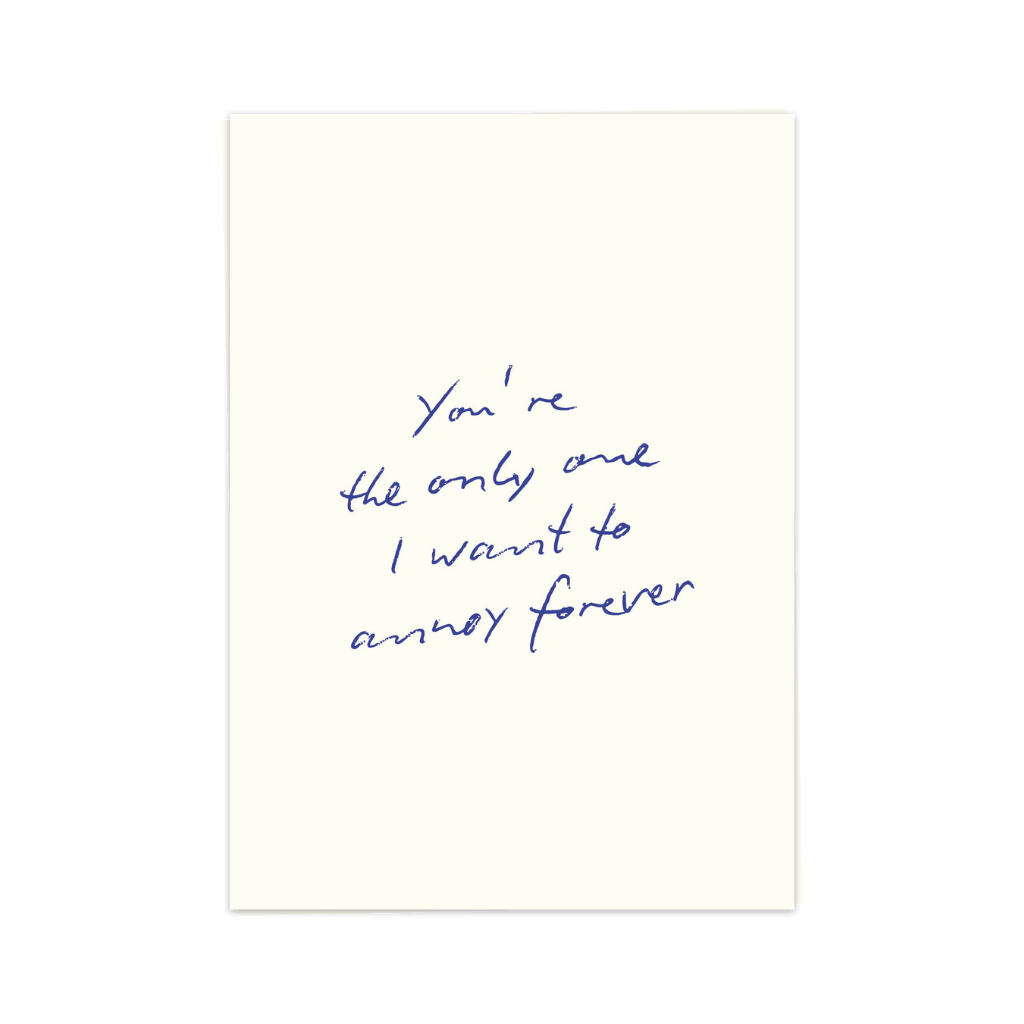 You're
the only one
I want to
annoy forever